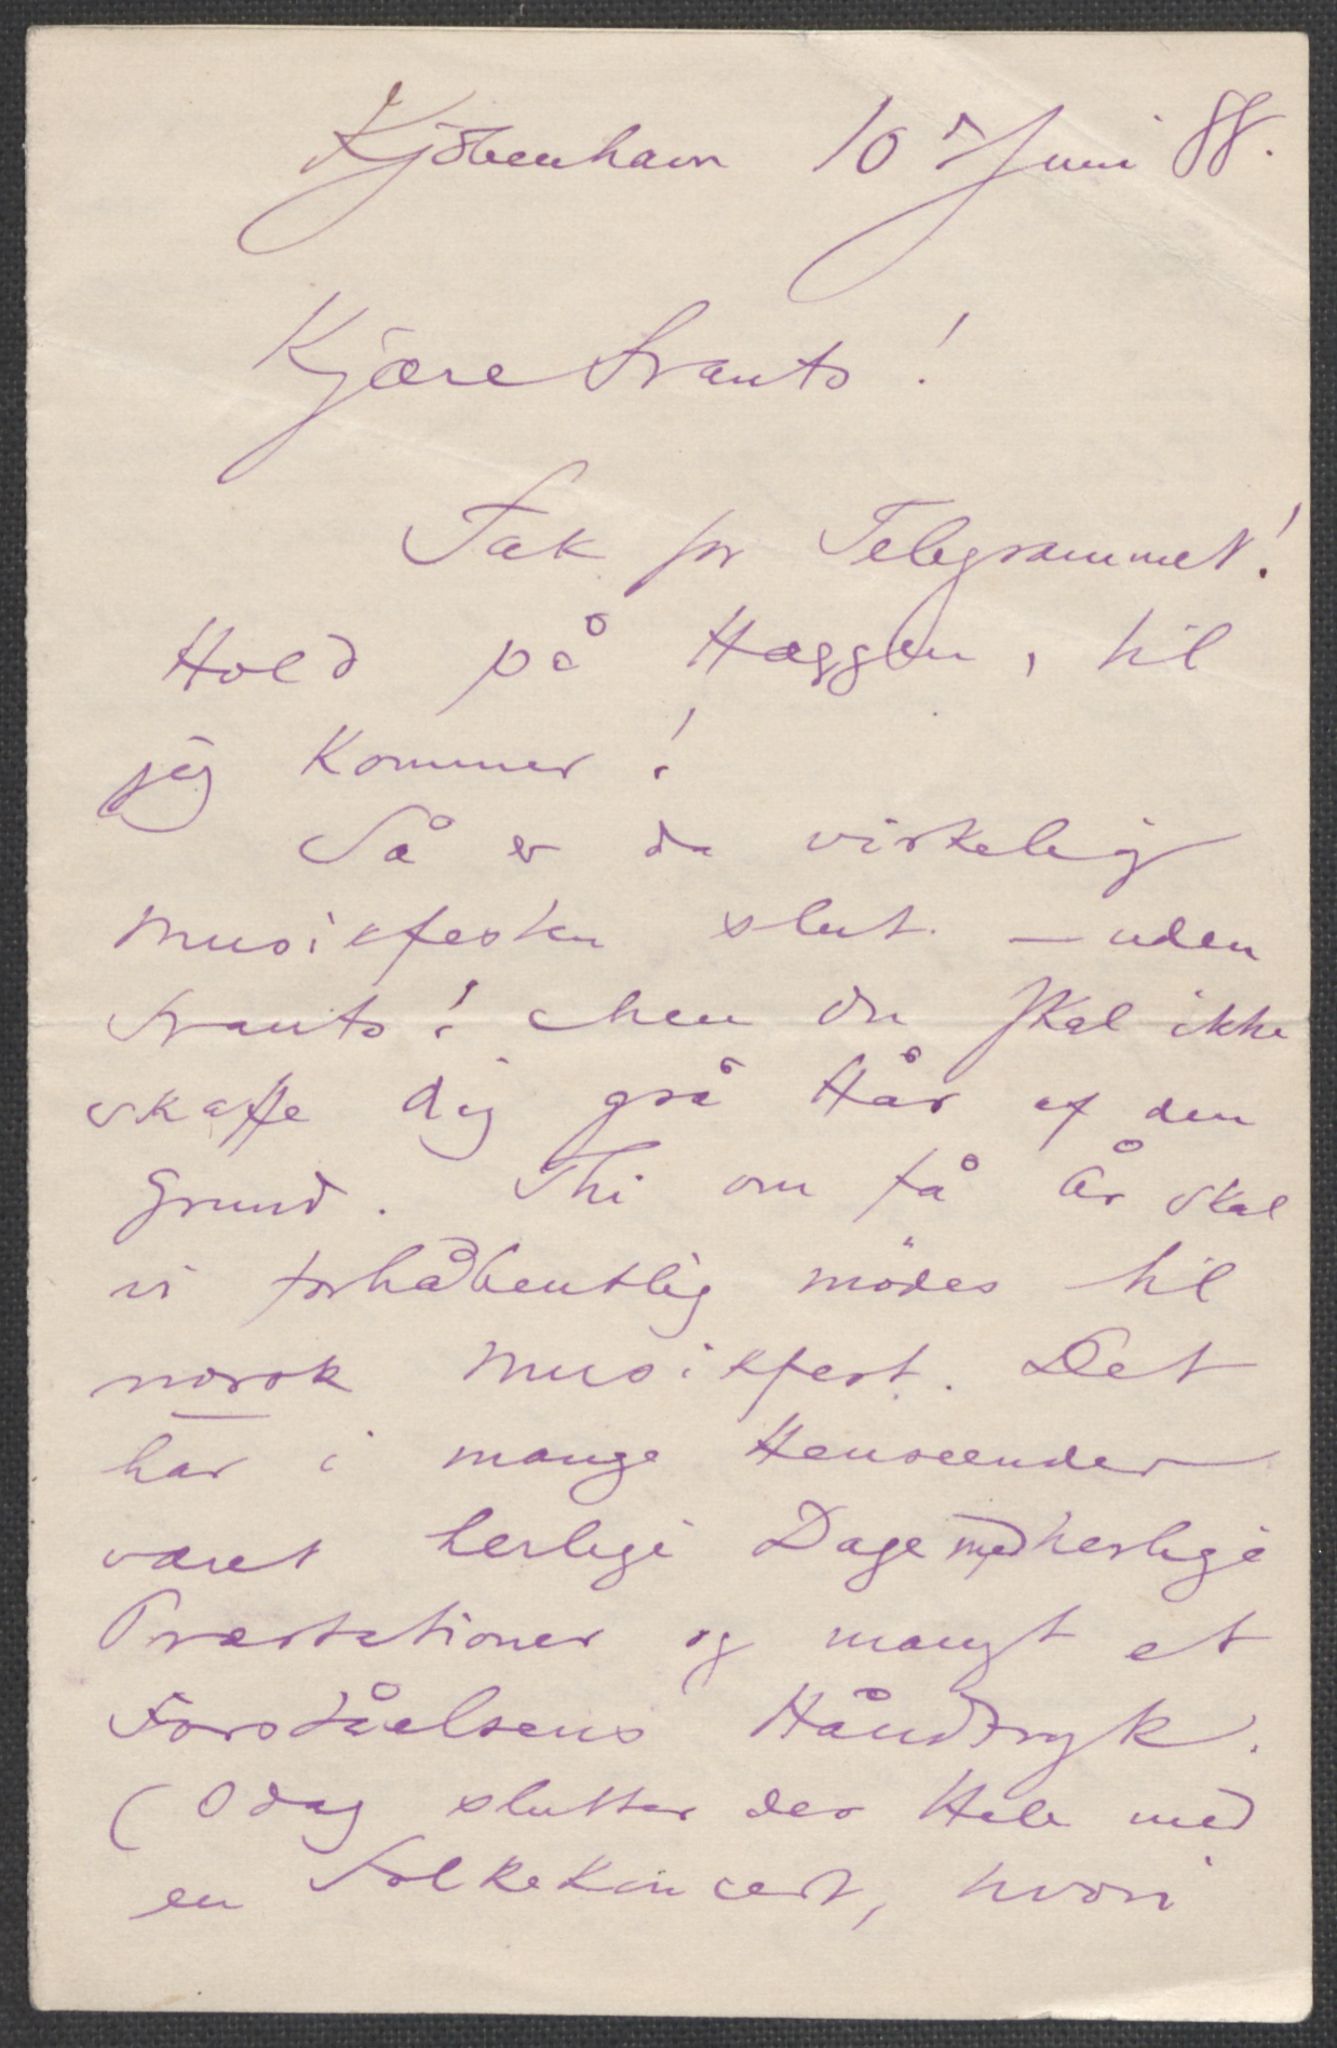 Kjöbenhavn 10 Juni 88.
Kjære Frants!
Tak for Telegrammet!
Hold på Hæggen, til
jeg kommer!
Så er da virkelig
Musikfesten slut – uden
Frants! Men Du skal ikke
skaffe dig grå Hår af den
Grund. Thi om få År skal
vi forhåbentlig mödes til
norsk Musikfest. Det
har i mange Henseender
været herlige Dage med herlige
Præstationer og mangt et
Forståelsens Håndtryk.
(Idag slutter det Hele med
en Folkekoncert, hvori